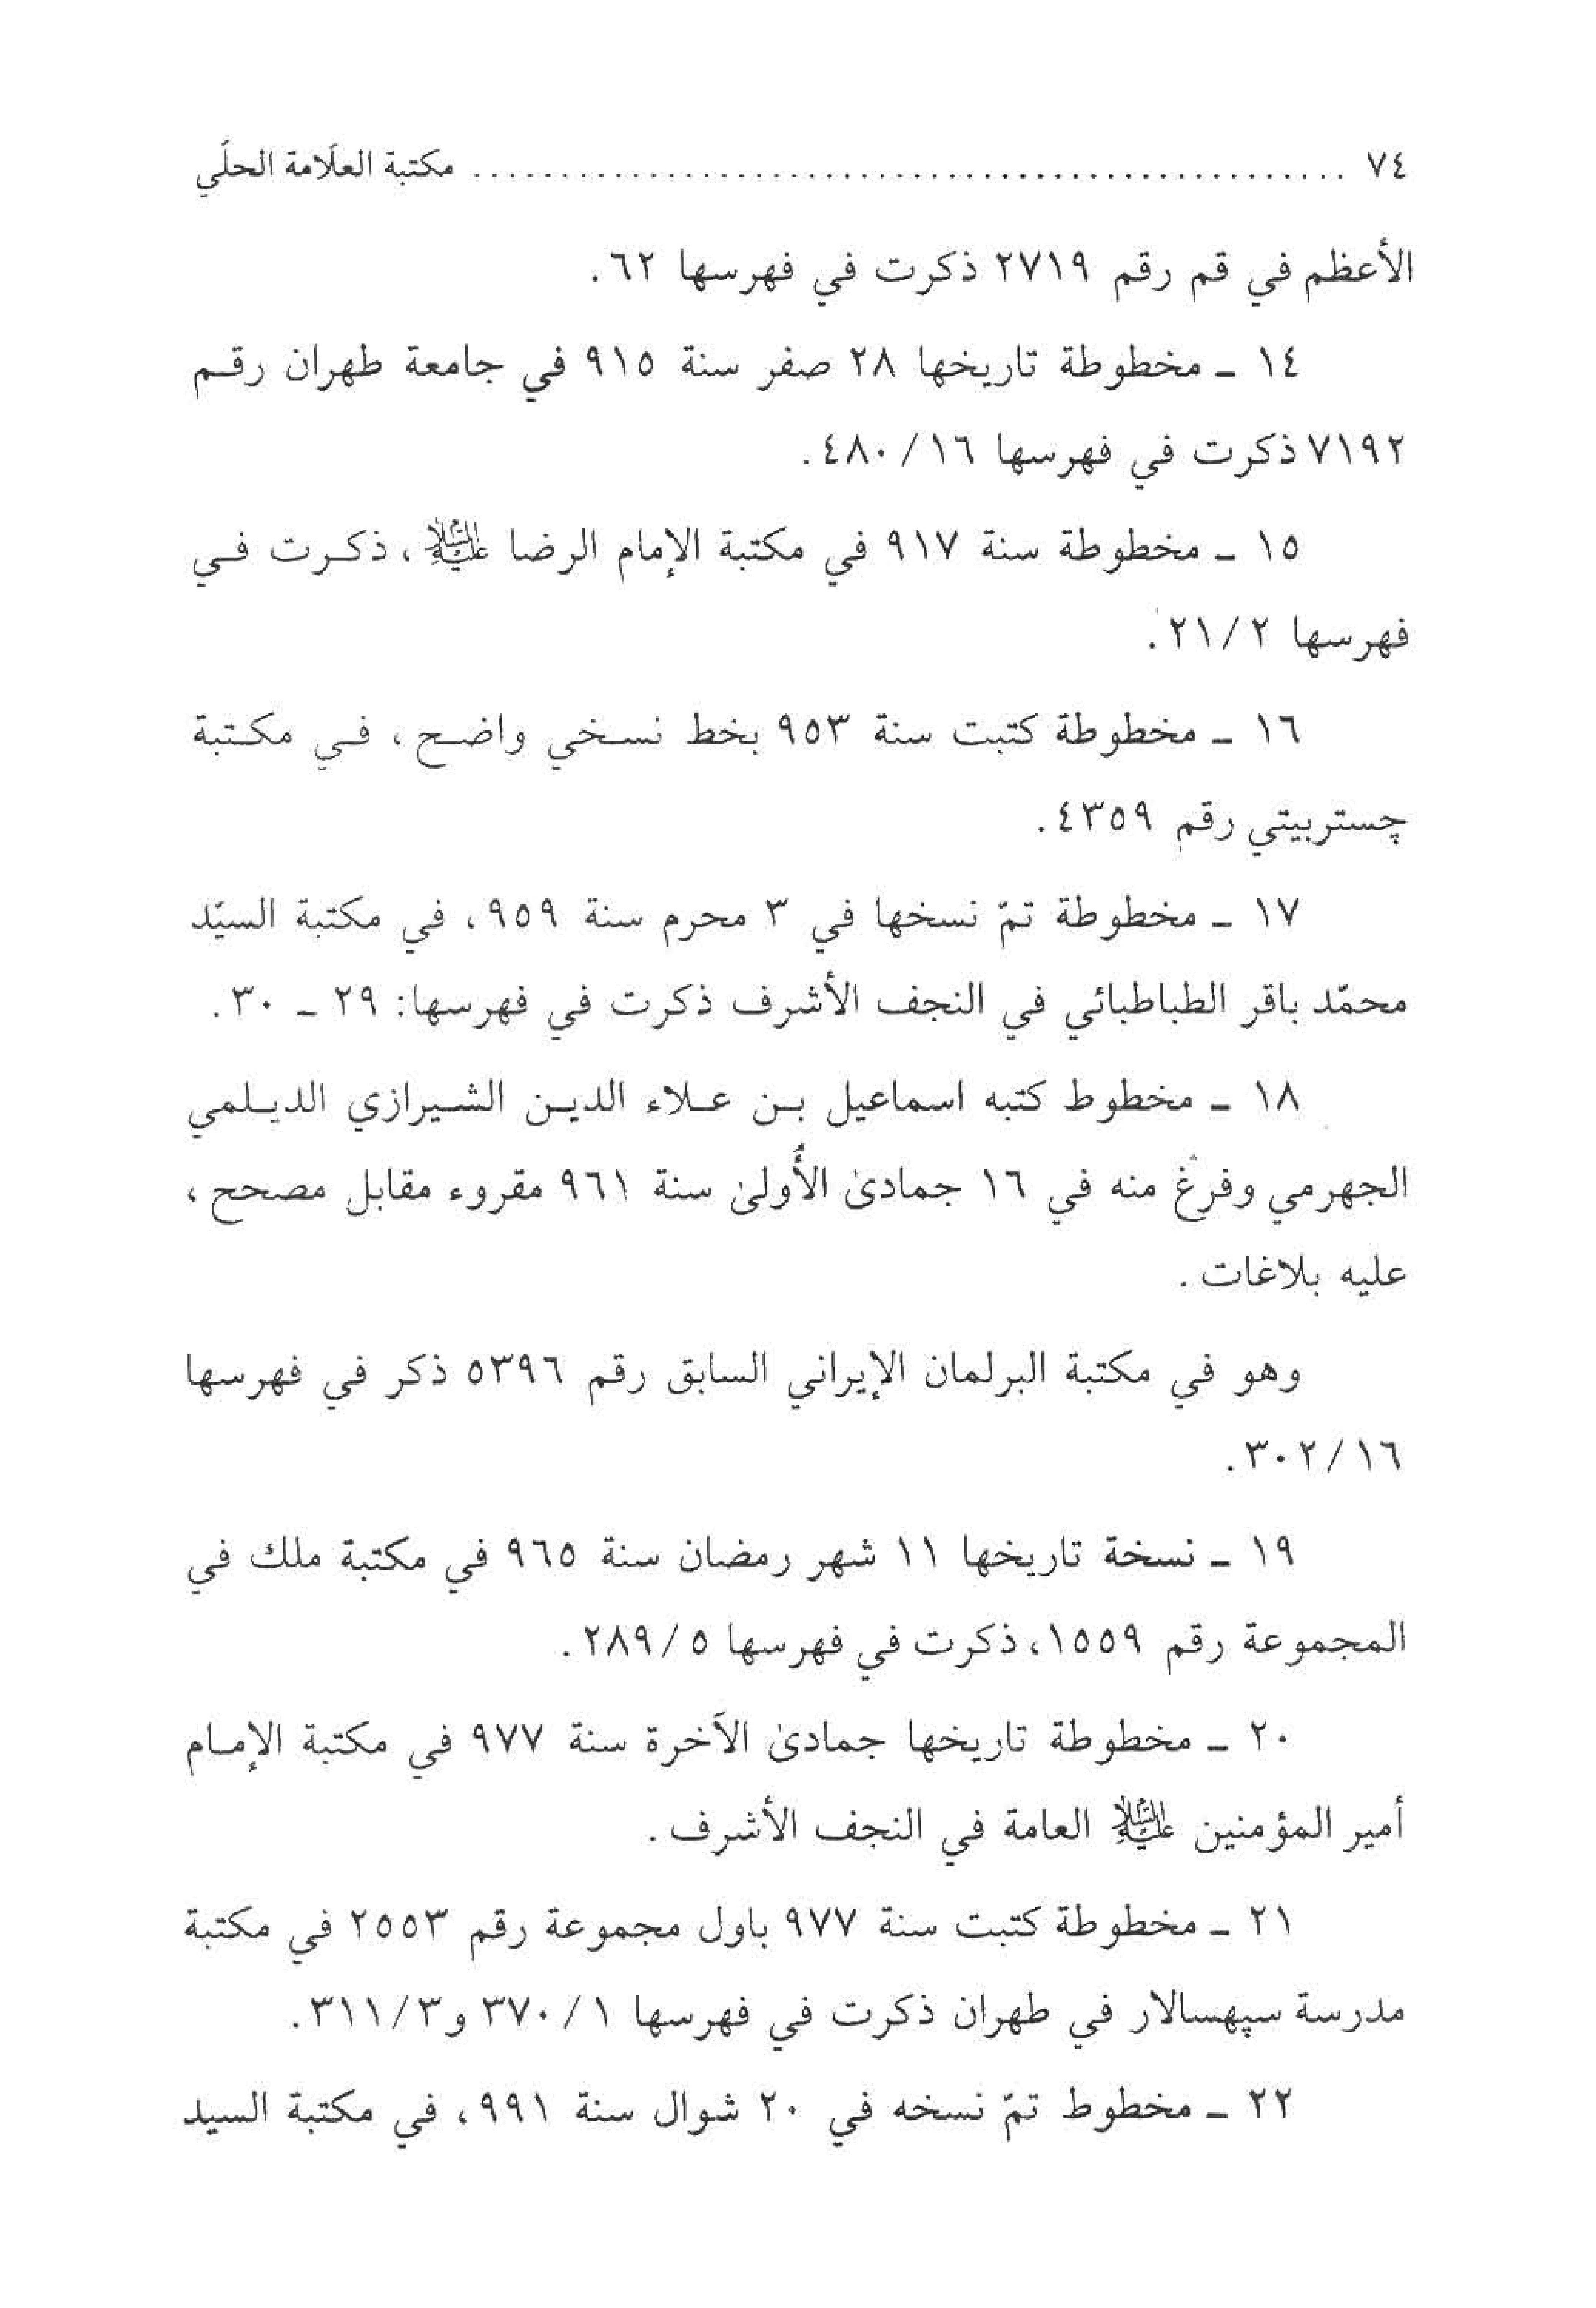 ٧٤ .................................................. مكتبة العلّامة الحلّي
الأعظم في قم رقم ٢٧١٩ ذكرت في فهرسها ٦٢.
١٤ ـ مخطوطة تاريخها ٢٨ صفر سنة ٩١٥ في جامعة طهران رقم
٧١٩٢ ذكرت في فهرسها ١٦/ ٤٨٠.
١٥ ـ مخطوطة سنة ٩١٧ في مكتبة الإمام الرضا عليه‌السلام، ذكرت في
فهرسها ٢/ ٢١.
١٦ ـ مخطوطة كتبت سنة ٩٥٣ بخط نسخي واضح، في مكتبة
چستربيتي رقم ٤٣٥٩.
١٧ ـ مخطوطة تمّ نسخها في ٣ محرم سنة ٩٥٩، في مكتبة السيّد
محمّد باقر الطباطبائي في النجف الأشرف ذكرت في فهرسها: ٢٩ ـ ٣٠.
١٨ ـ مخطوط كتبه اسماعيل بن علاء الدين الشيرازي الديلمي
الجهرمي وفرغ منه في ١٦ جمادىٰ الأُولىٰ سنة ٩٦١ مقروء مقابل مصحح،
عليه بلاغات.
وهو في مكتبة البرلمان الإيراني السابق رقم ٥٣٩٦ ذكر في فهرسها
١٦/ ٣٠٢.
١٩ ـ نسخة تاريخها ١١ شهر رمضان سنة ٩٦٥ في مكتبة ملك في
المجموعة رقم ١٥٥٩، ذكرت في فهرسها ٥/ ٢٨٩.
٢٠ ـ مخطوطة تاريخها جمادىٰ الآخرة سنة ٩٧٧ في مكتبة الإمام
أمير المؤمنين عليه‌السلام العامة في النجف الأشرف.
٢١ ـ مخطوطة كتبت سنة ٩٧٧ باول مجموعة رقم ٢٥٥٣ في مكتبة
مدرسة سپهسالار في طهران ذكرت في فهرسها ١/ ٣٧٠ و٣/ ٣١١.
٢٢ ـ مخطوط تمّ نسخه في ٢٠ شوال سنة ٩٩١، في مكتبة السيد